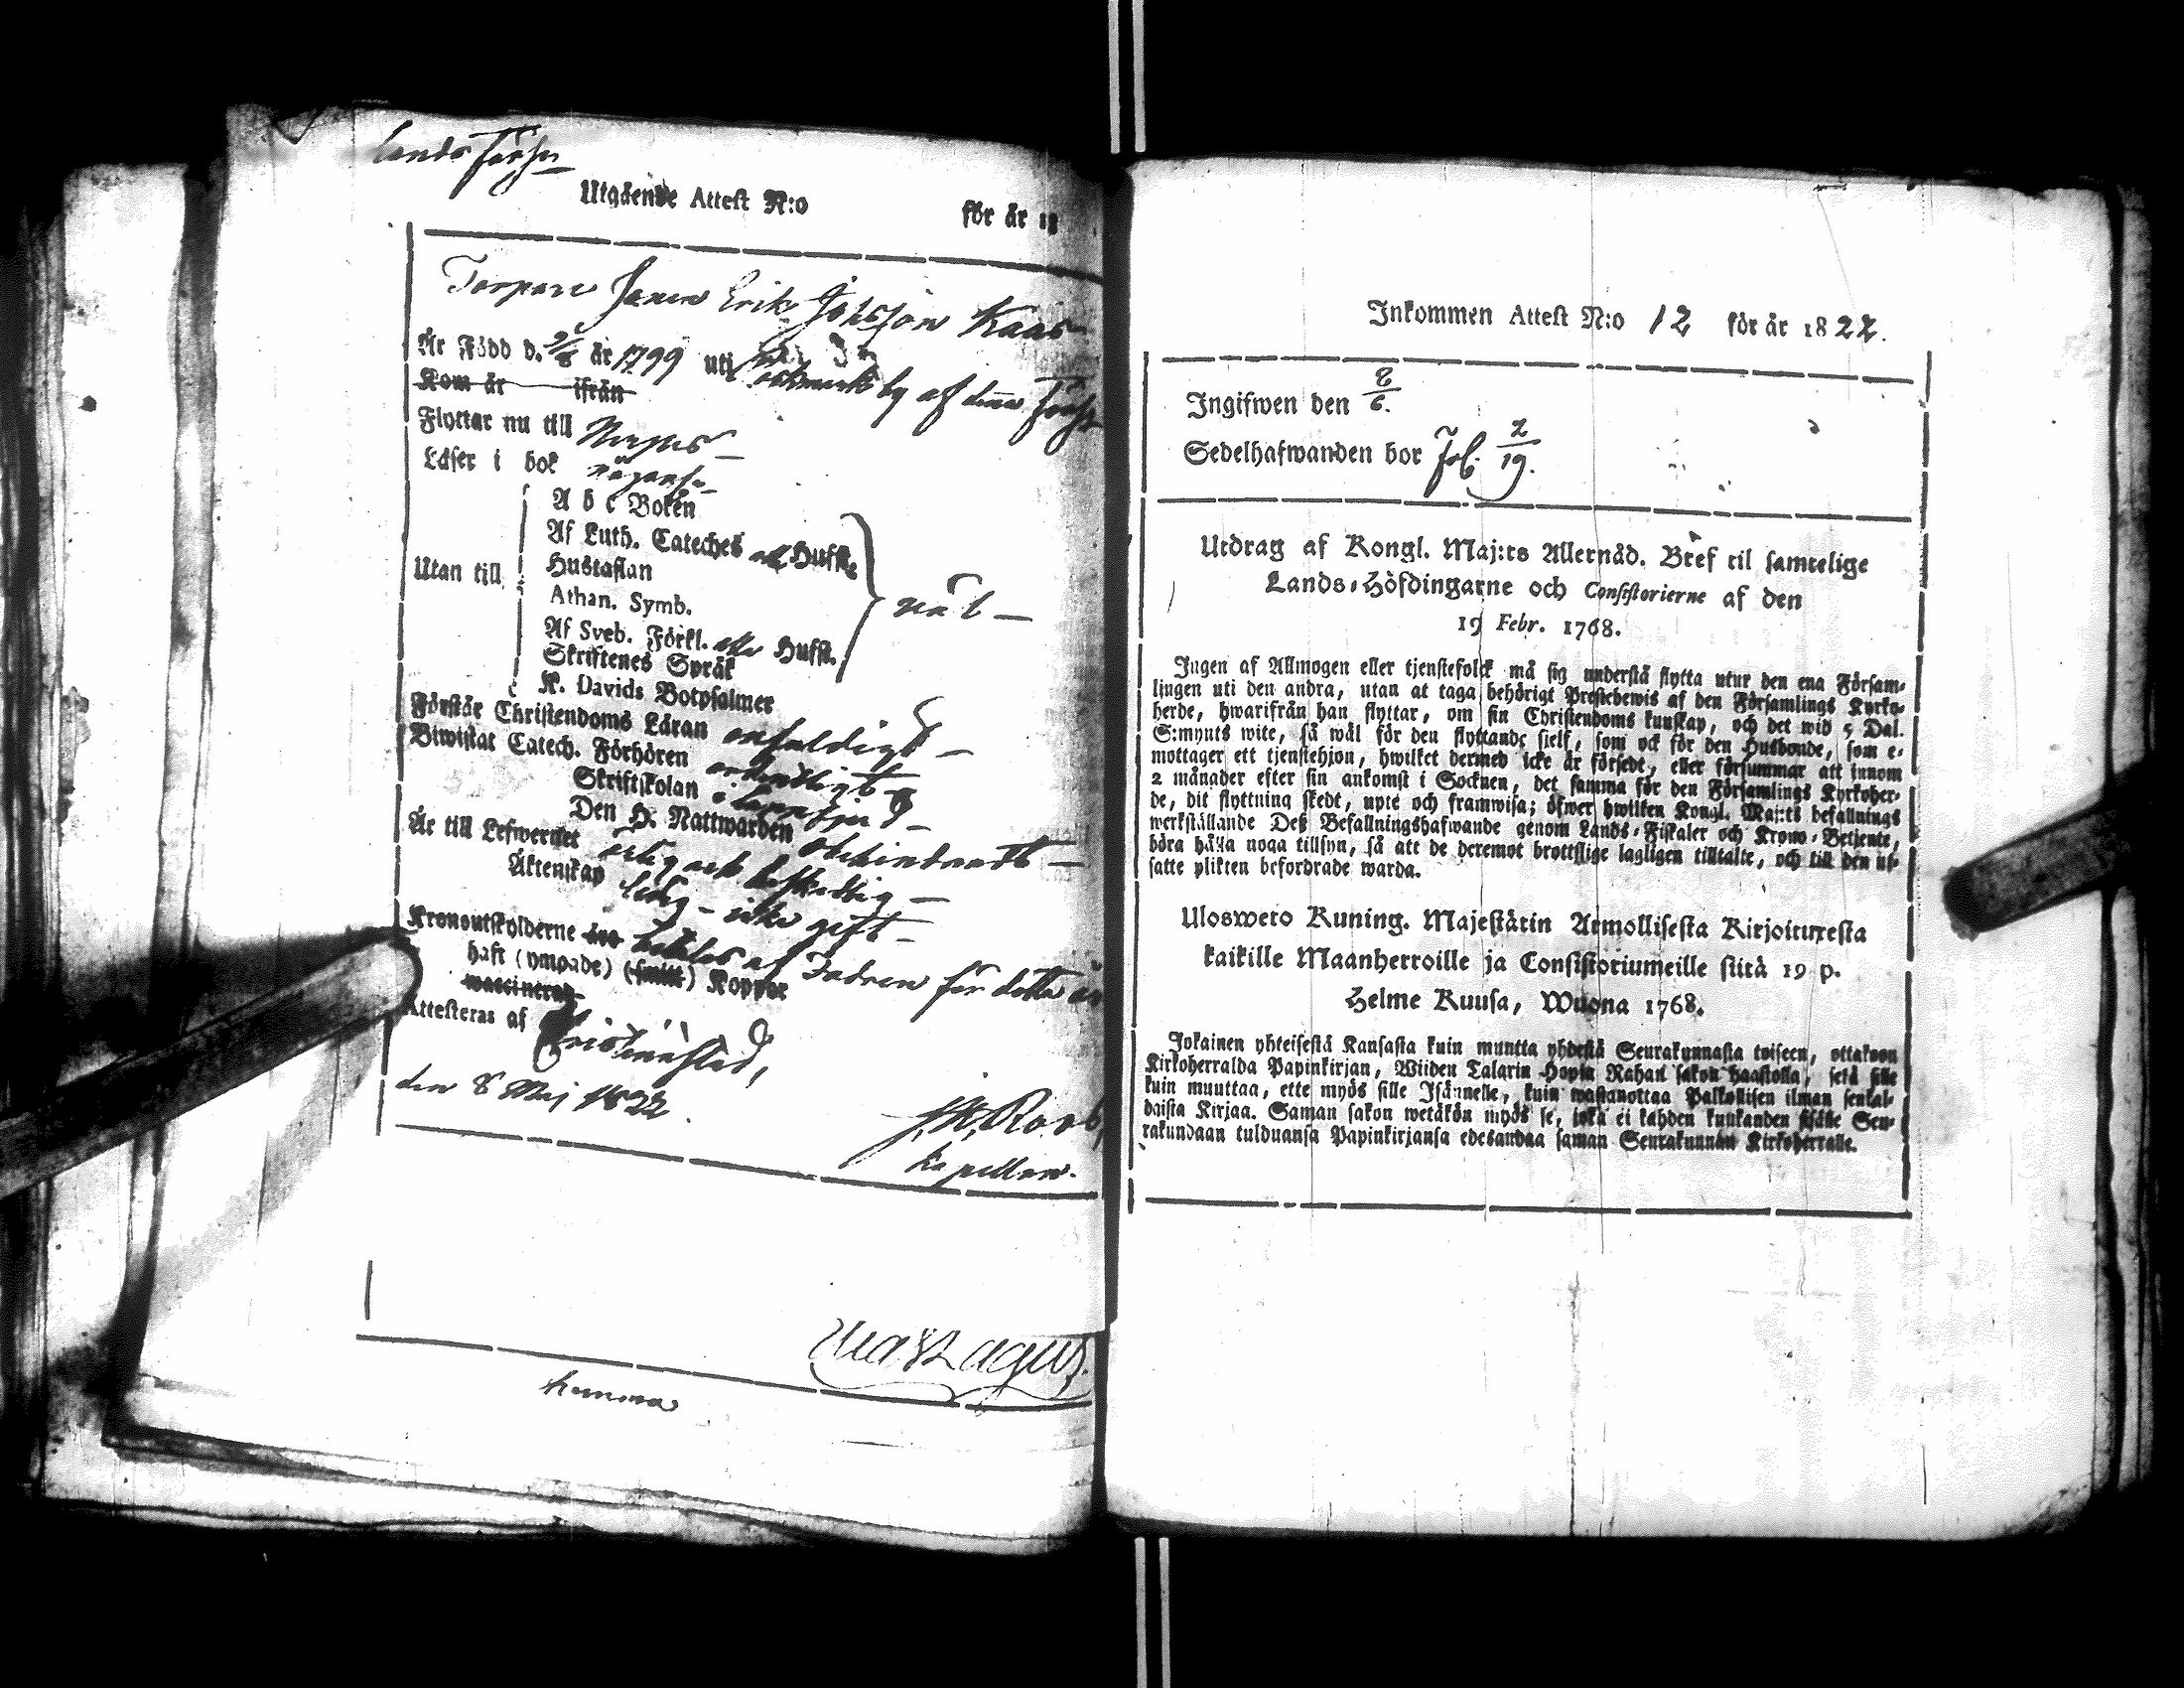 Lands Förs:
Utgående Attest N:o för år 18
Torpare Sonen Erik Johsson Kaas
År Född d. år 1799 uti by af denna Förs
Kom år ifrån
Flyttar nu till
Läser i bok någon
A b c Boken
Af Luth. Cateches alla Hufst.
Hustaflan
Utan till
Athan. Symb.
nöl
Af Sveb. Förkl. alla Hufst.
Skriftenes Språk
K. Davids Botpsalmer
Förstår Christendoms Läran enfaldigt
Biwistat Catech. Förhören ordentligt
Skriftskolan
Den H. Nattwarden obehindradt
År till Lefwernet ärlig och beskedlig
Äktenskap ledig - icke gift
Kronoutskylderne äro betalas af Fadren för detta år
haft (ympade) (smitt) Koppor
waccinerad
Attesteras af Christinestad,
den 8 Maj 1822
Kapellan.
hemma
Inkommen Attest N:o 12 för år 1822.
Ingifwen den 8/6.
Sedelhafwanden bor Fol. 2/19.
Utdrag af Kongl. Maj:ts Allernåd. Bref til samtelige
Lands-Höfdingarne och Consistorierne af den
19 Febr. 1768.
Ingen af Allmogen eller tjenstefolck må sig understå flytta utur den ena Försam-
lingen uti den andra, utan at taga behörigt Prestebewis af den Församlings Kyrko-
herde, hwarifrån han flyttar, om sin Christendoms kunskap, och det wid 5 Dal.
S:mynts wite, så wäl för den flyttande sielf, som ock för den Husbonde, som e-
mottager ett tjenstehjon, hwilket dermed icke är försedt, eller försummar att innom
2 månader efter sin ankomst i Socknen, det samma för den Församlings Kyrkoher-
de, dit flyttning skedt, upte och framwisa; öfwer hwilken Kongl. Maj:ts befallnings
werkställande Deß Befallningshafwande genom Lands-Fiskaler och Krono-Betjente,
böra hålla noga tillsyn, så att de deremot brottslige lagligen tilltalte, och till den ut-
satte plikten befordrade warda.
Ulosweto Kuning. Majestätin Armollisesta Kirjoituxesta
kaikille Maanherroille ja Consistoriumeille siitä 19 p.
Helme Kuusa, Wuona 1768.
Jokainen yhteisestä Kansasta kuin muutta yhdestä Seurakunnasta toiseen, ottakoon
Kirkoherralda Papinkirjan, Wiiden Talarin Hopia Rahan sakon haastolla, setä sille
kuin muuttaa, ette myös sille Isännelle, kuin wastanottaa Palkollisen ilman senkal-
daista Kirjaa. Saman sakon wetäkön myös se, joka ei kahden kuukanden sisälle Seu-
rakundaan tulduansa Papinkirjansa edesandaa saman Seurakunnan Kirkoherralle.